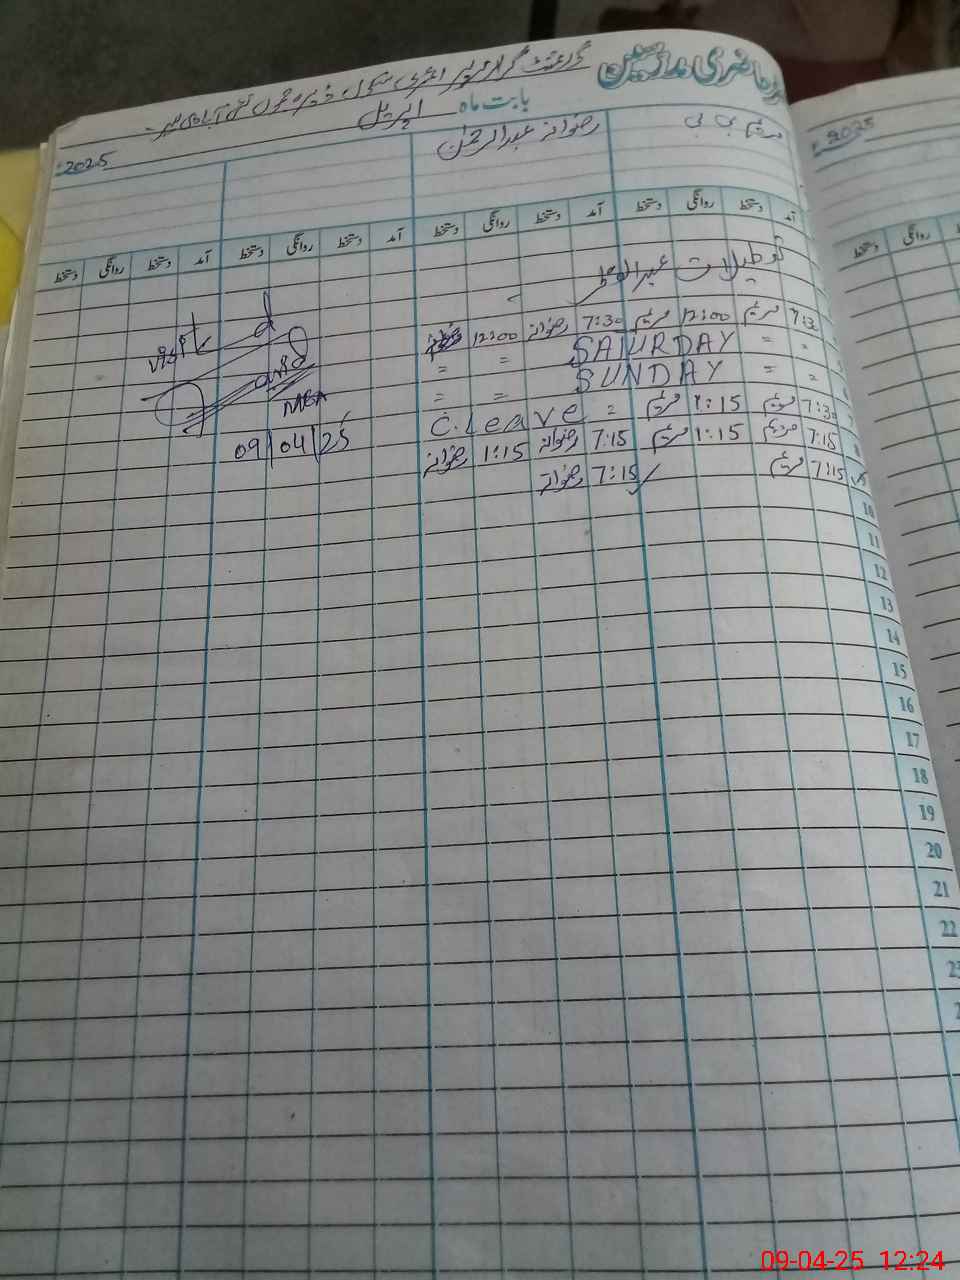 حاضری مدرسین
گورنمنٹ گرلز
بابت ماہ اپریل 2025ء
مریم بی بی
رضوانہ عبدالرحمٰن
آمد دستخط روانگی دستخط آمد دستخط روانگی دستخط آمد دستخط روانگی دستخط آمد دستخط روانگی دستخط
تعطیلات عیدالفطر
7:30 مریم 12:00 مریم 7:30 رضوانہ 12:00 رضوانہ
" " SATURDAY " "
" " SUNDAY " "
7:30 مریم 1:15 مریم " C.Leave
7:15 مریم 1:15 مریم 7:15 رضوانہ 1:15 رضوانہ
7:15 مریم 7:15 رضوانہ
Visited
and
MEA
09/04/25
10
11
12
13
14
15
16
17
18
19
20
21
22
23
2025ء
آمد
روانگی دستخط
09-04-25 12:24